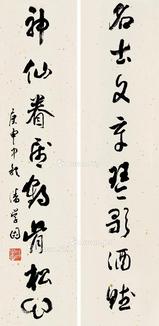 名士文章琴歌酒賦
神仙眷属鶴骨松心
庚申中秋潘学固